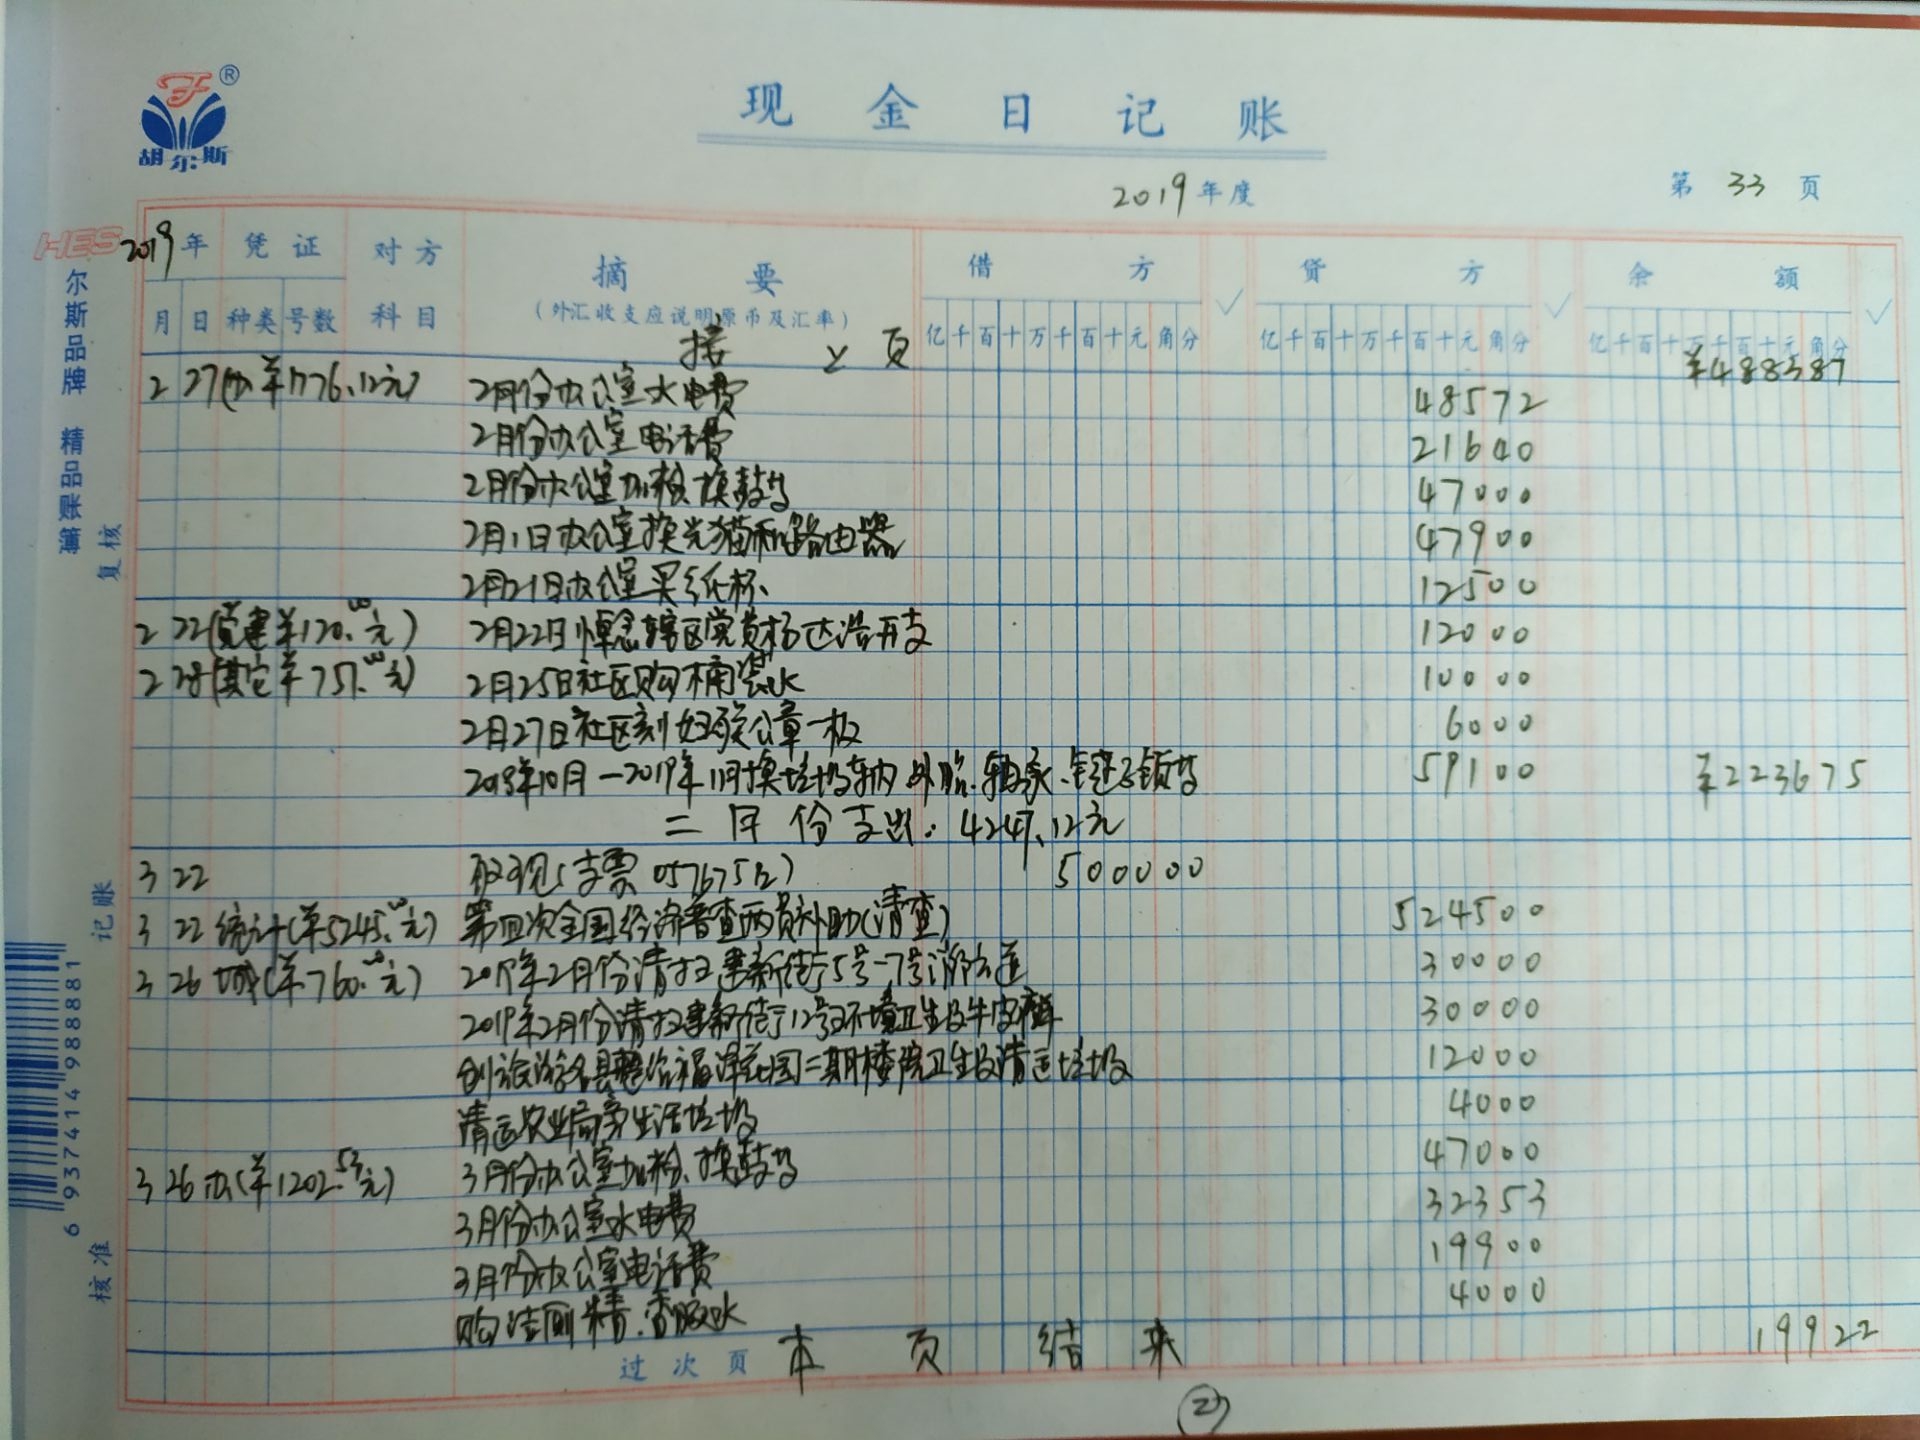 胡尔斯®
现金日记账
2019年度
第 33 页
HES
尔斯品牌 精品账簿
复核
记账
核准
6 937414 988881
2019年 凭证 对方 摘要 借方 贷方 余额
月 日 种类 号数 科目 (外汇收支应说明原币及汇率) 亿千百十万千百十元角分 亿千百十万千百十元角分 亿千百十万千百十元角分
接上页 ¥488387
2 27(办¥1776.12元) 2月份办公室水电费 48572
2月份办公室电话费 21640
2月份办公室加粉、换鼓等 47000
2月1日办公室换光猫和路由器 47900
2月21日办公室买纸杯、 12500
2 22(党建¥120.00元) 2月22日悼念辖区党员杨达浩开支 12000
2 28(其它¥751.00元) 2月25日社区购桶装水 10000
2月27日社区刻妇联公章一枚 6000
2018年10月—2019年1月换垃圾车内外胎、轴承、链子锁等 59100 ¥223675
二月份支出：4247.12元
3 22 取现(支票 0576751) 500000
3 22 统计(¥5245.00元) 第四次全国经济普查两员补助(清查) 524500
3 26 城(¥760.00元) 2019年2月份清扫建新街5号-7号消防通 30000
2019年2月份清扫建新街12号环境卫生及牛皮癣 30000
创旅游名县整治福泽花园二期楼院卫生及清运垃圾 12000
清运农业局旁生活垃圾 4000
3 26 办(¥1202.53元) 3月份办公室加粉、换鼓等 47000
3月份办公室水电费 32353
3月份办公室电话费 19900
购洁厕精、香吸水 4000
过次页 本页结束 19922
②